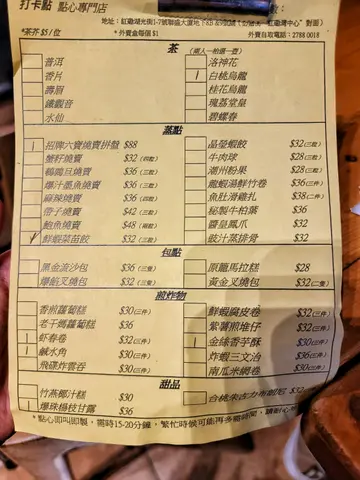 打卡點 點心專門店
地址：紅磡湖光街1-7號聯盛大廈地下8B &9號鋪
中心"對面)
*茶芥 $5/位 *外賣盒每個 $1 外賣自取電話：2788 0018
茶 (兩人一柏選一壺)
普洱 洛神花
香片 1 白桃烏龍
壽眉 桂花烏龍
鐵觀音 瑰荔堂皇
水仙 碧螺春
蒸點
1 招牌六寶燒賣拼盤 $88 晶瑩蝦餃 $32(三粒)
蟹籽燒賣 $32(四粒) 牛肉球 $28(三粒)
鵪鶉旦燒賣 $36(三粒) 潮州粉果 $28(三粒)
爆汁墨魚燒賣 $36(三粒) 龍蝦湯鮮竹卷 $36(三件)
麻辣燒賣 $36(四粒) 魚肚滑雞扎 $38(二件)
帶子燒賣 $42(三粒) 秘製牛柏葉 $36
鮑魚燒賣 $48(兩粒) 醬皇鳳爪 $32
鮮蝦菜苗餃 $32(三粒) 豉汁蒸排骨 $32
包點
黑金流沙包 $36(三隻) 原籠馬拉糕 $28
爆餡叉燒包 $36(三隻) 黃金叉燒包 $32(二隻)
煎炸物
香煎蘿蔔糕 $30(三件) 鮮蝦腐皮卷 $32(三件)
老干媽蘿蔔糕 $36 紫薯煎堆仔 $32(三件)
1 蝦春卷 $32(三件) 1 金絲香芋酥 $30(三件)
1 鹹水角 $30(三件) 炸蝦三文治 $36(三件)
飛碟炸雲吞 $30(三件) 南瓜米網卷 $30(三件)
甜品
竹蔗椰汁糕 $30 合桃朱古力布朗尼 $32
1 爆珠楊枝甘露 $36
*點心即叫即製，需時15-20分鐘，繁忙時候可能再多幾時間，請耐心